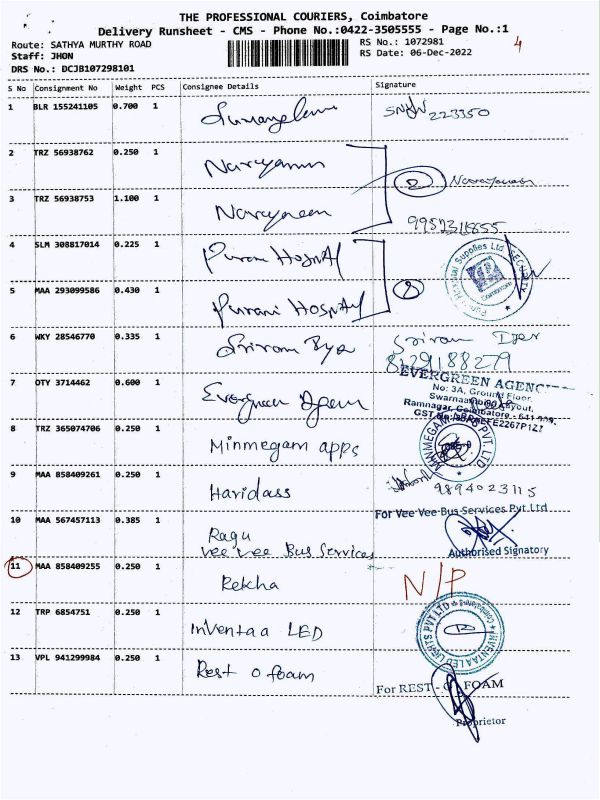 THE PROFESSIONAL COURIERS, Coimbatore
Delivery Runsheet - CMS - Phone No.:0422-3505555 - Page No.:1
Route: SATHYA MURTHY ROAD
RS No.: 1072981
4
Staff: JHON
RS Date: 06-Dec-2022
DRS No.: DCJB107298101
S No Consignment No Weight PCS Consignee Details Signature
1 BLR 155241105 0.700 1 223350
2 TRZ 56938762 0.250 1 Narayanan 2
3 TRZ 56938753 1.100 1 Narayanan
9952311855
4 SLM 308817014 0.225 1 Purani Hospital
Hospital Supplies Ltd SECURITY Coimbatore
5 MAA 293099586 0.430 1 Purani Hospital
6 WKY 28546770 0.335 1 Sriram Sriram
8129188279
7 OTY 3714462 0.600 1 Evergreen Agen
EVERGREEN AGENC
No: 3A, Ground Floor,
Ramnagar, Coimbatore - 641
8 TRZ 365074706 0.250 1 Minmegam apps
MINMEGAM PVT. LTD
9 MAA 858409261 0.250 1 Haridass 9894023115
For Vee Vee Bus Services Pvt Ltd
10 MAA 567457113 0.385 1 Ragu
Vee Vee Bus Services
Authorised Signatory
11 MAA 858409255 0.250 1 Rekha N/P
12 TRP 6854751 0.250 1 Inventaa LED
INVENTAA LED LIGHTS PVT LTD Coimbatore
13 VPL 941299984 0.250 1 Rest O foam
For REST - O - FOAM
Proprietor